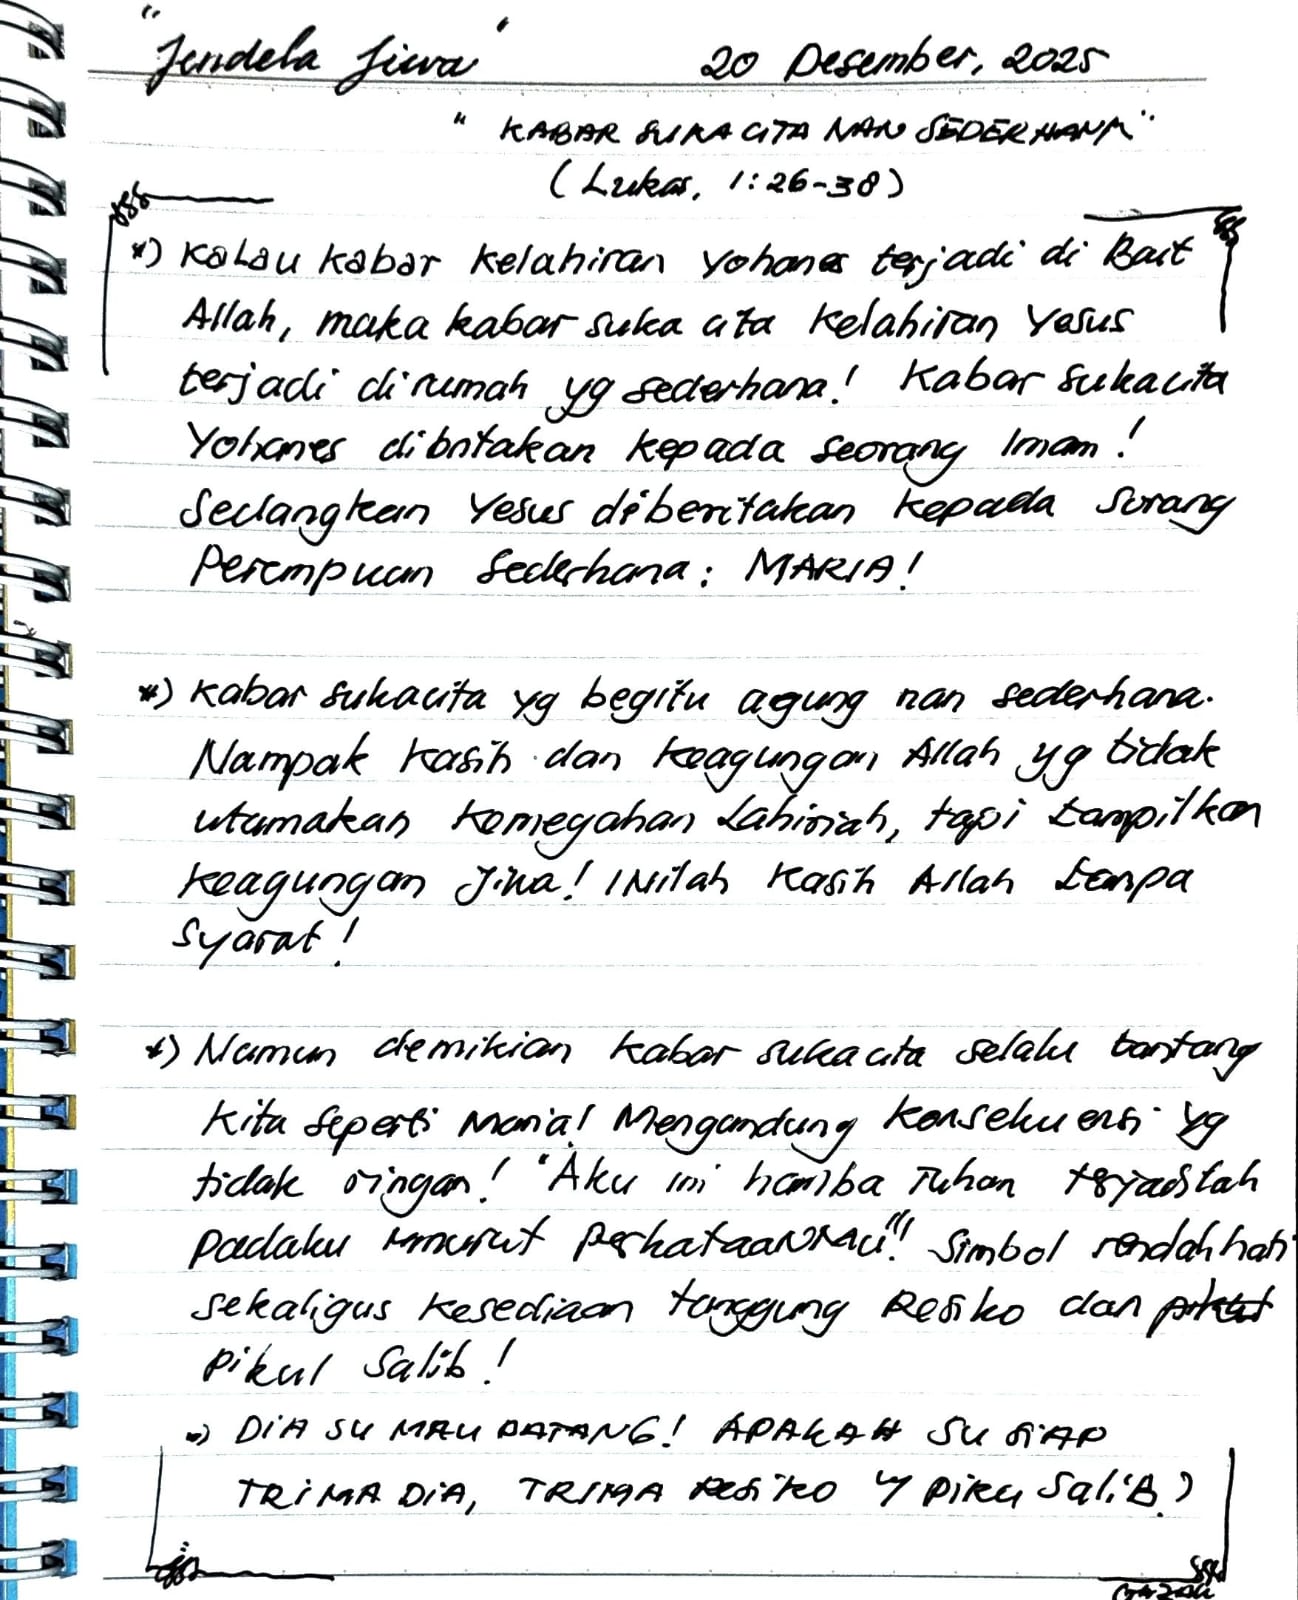 "Jendela Jiwa" 20 Desember, 2025
"KABAR SUKACITA NAN SEDERHANA"
(Lukas, 1:26-38)
*) Kalau kabar kelahiran Yohanes terjadi di Bait
Allah, maka kabar suka cita kelahiran Yesus
terjadi di rumah yg sederhana! Kabar sukacita
Yohanes dibritakan kepada seorang Imam!
Sedangkan Yesus diberitakan kepada sorang
Perempuan sederhana: MARIA!
*) Kabar sukacita yg begitu agung nan sederhana.
Nampak kasih dan keagungan Allah yg tidak
utamakan kemegahan Lahiriah, tapi tampilkan
keagungan Jiwa! INilah kasih Allah tanpa
syarat!
*) Namun demikian kabar sukacita selalu tantang
kita seperti Maria! Mengandung konsekuensi yg
tidak ringan! "Aku ini hamba Tuhan terjadilah
padaku menurut perkataanMu"!! Simbol rendah hati
sekaligus kesediaan tanggung Resiko dan
pikul Salib!
=) DIA SU MAU DATANG! APAKAH SU SIAP
TRIMA DIA, TRIMA Resiko Y piku SaliB?